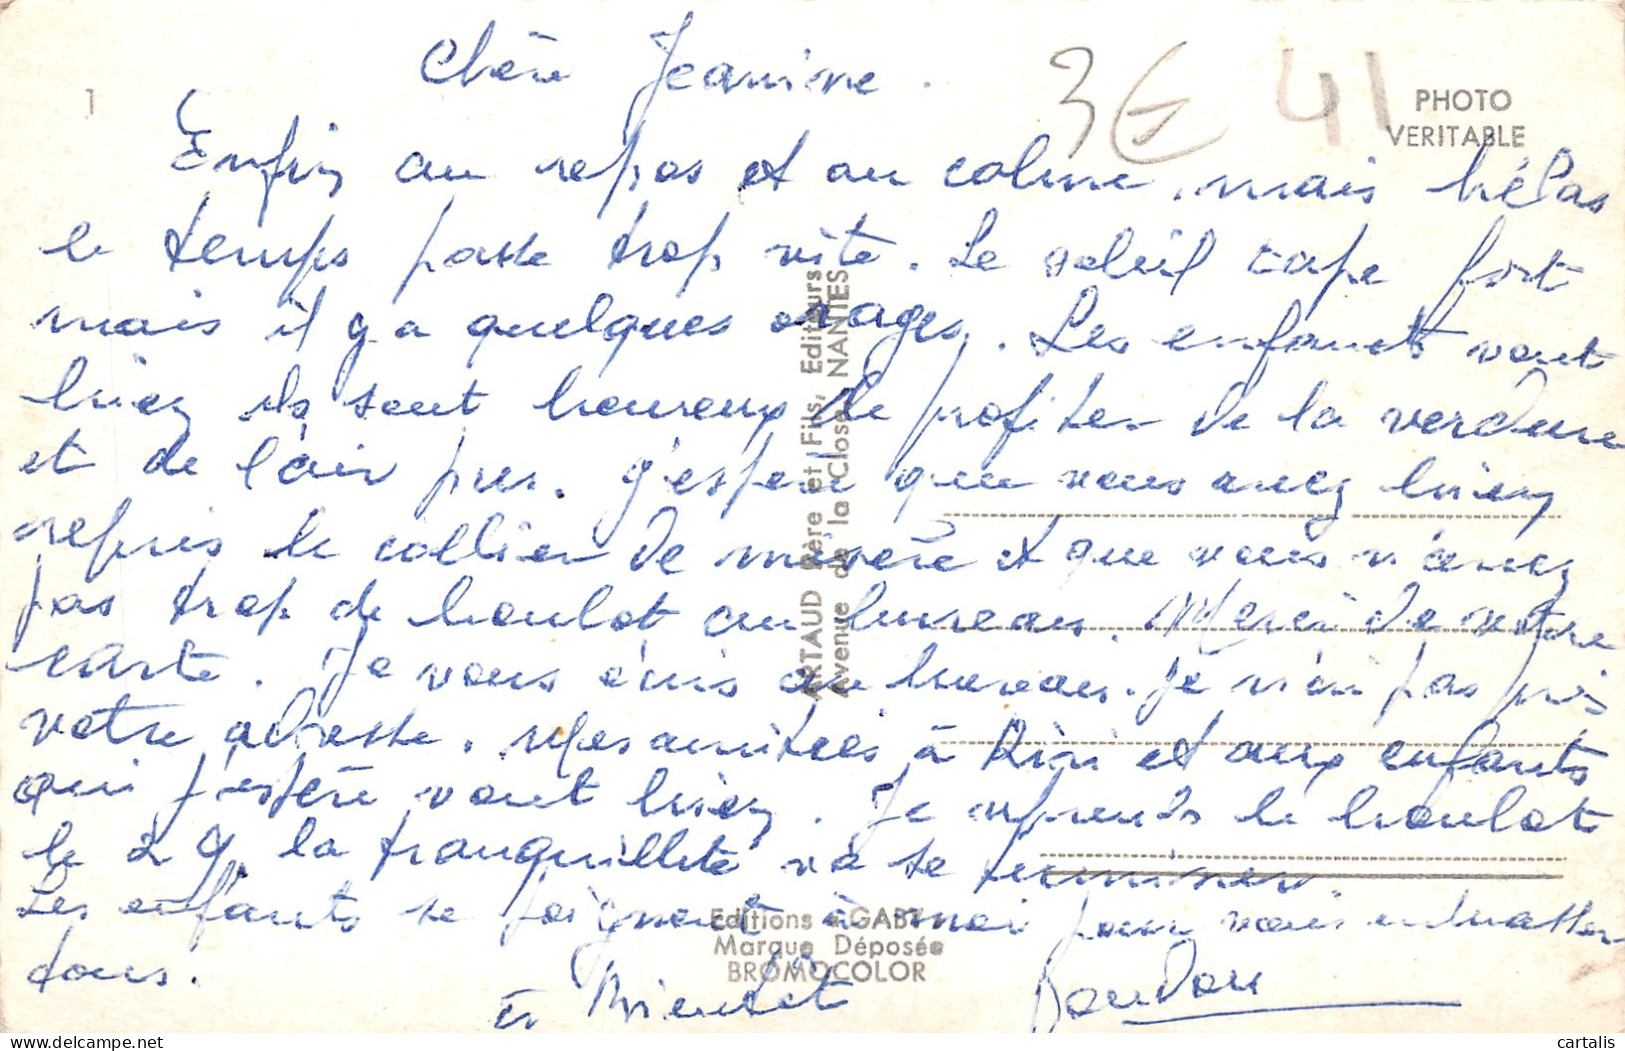 Chère Jeanine.
3€ 41
1
PHOTO
VERITABLE
Enfin au repos et au calme, mais hélas
le temps passe trop vite. Le soleil tape fort
mais il y a quelques orages. Les enfants vont
bien ils sont heureux de profiter de la verdure
et de l'air pur. J'espère que vous avez bien
repris le collier de misère et que vous n'avez
pas trop de boulot au bureau. Merci de votre
carte. Je vous écris au bureau. Je n'ai pas pris
votre adresse. Mes amitiés à Riri et aux enfants
qui j'espère vont bien. Je reprends le boulot
le 29, la tranquillité va se terminer.
Les enfants se joignent à moi pour vous embrasser
tous.
à Bientôt
ARTAUD Père et Fils, Editeurs
Avenue de la Close, NANTES
Editions GABY
Marque Déposée
BROMOCOLOR
cartalis
delcampe.net